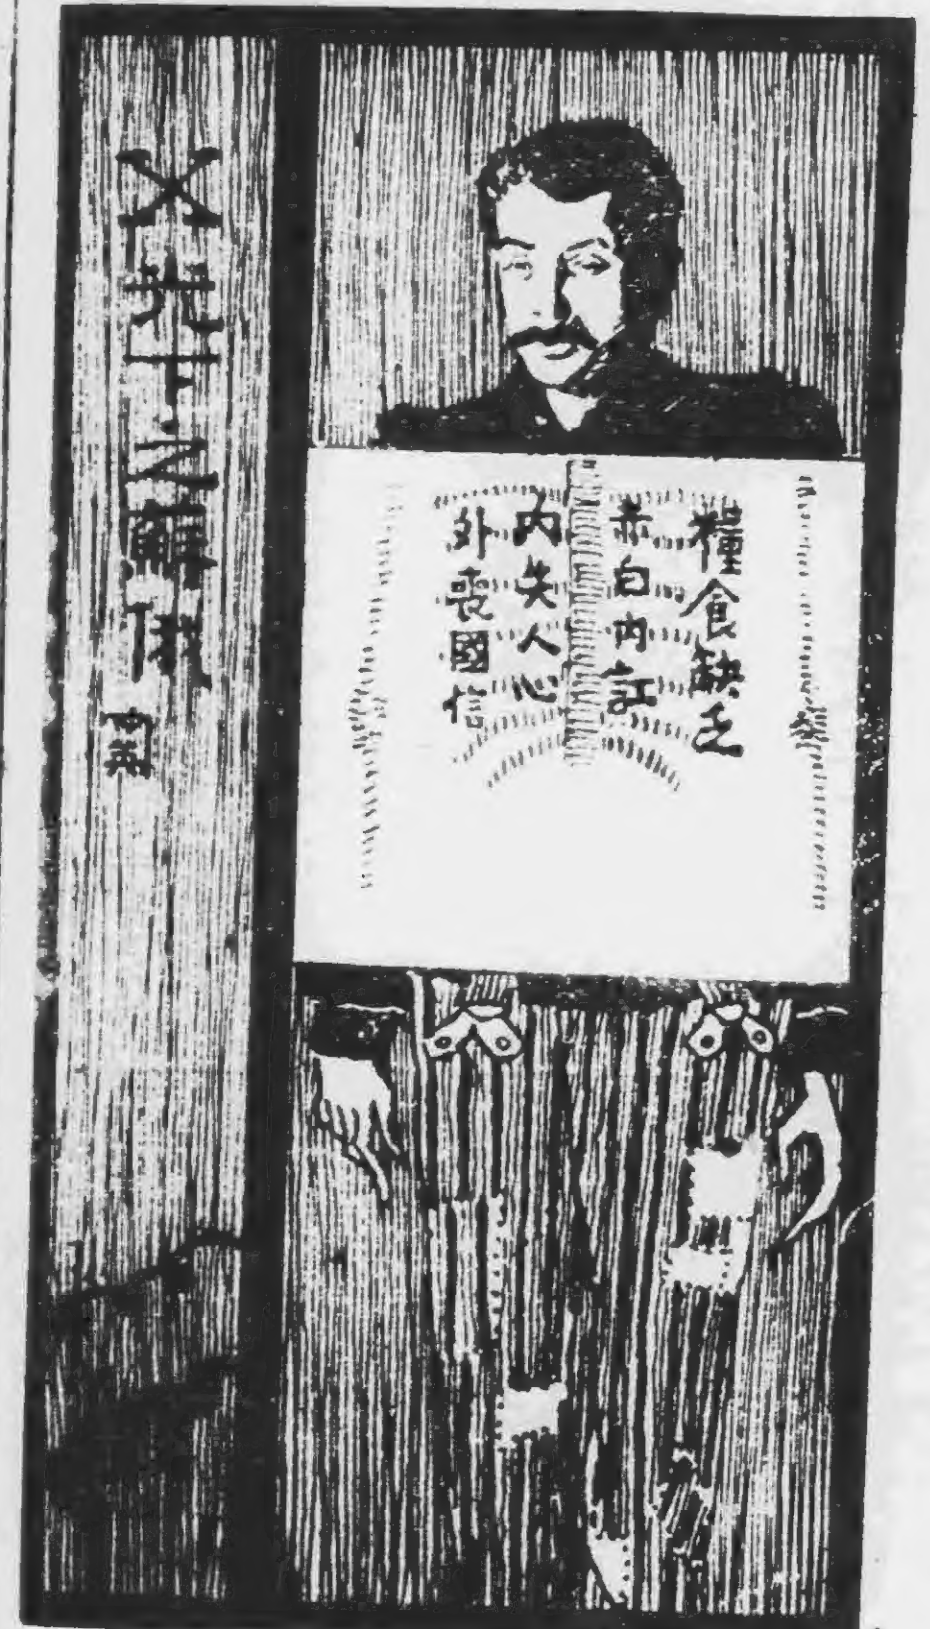 糧食缺乏
赤白內訌
內失人心
外喪國信
X光下之蘇